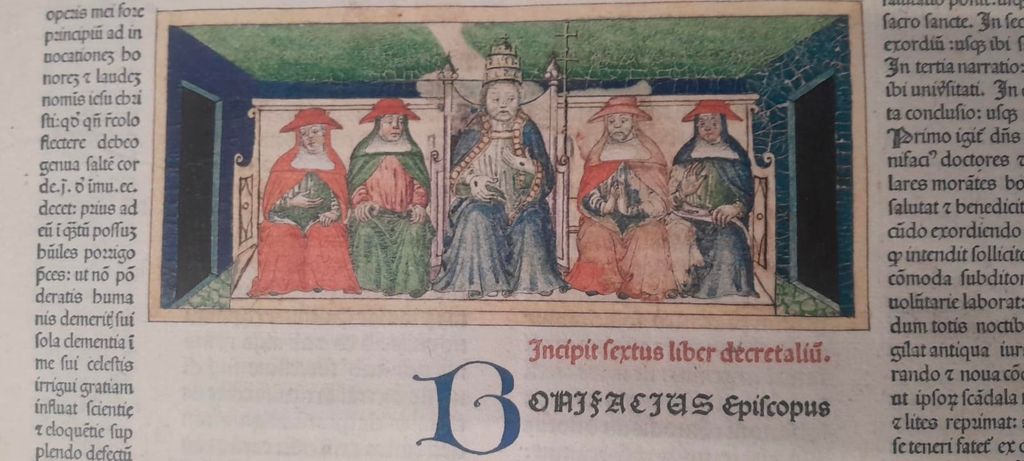 operis mei fore
principiū ad in
uocationeʒ bo
noreʒ ⁊ laudeʒ
nomis iesu chri
sti: qď qñ rͨcolo
flectere debeo
genua saltē cor
de. j. ď imu. ec.
decet: prius ad
eū i q̄stū possuʒ
hūiles porrigo
p̄ces: ut nō pō
deratis huma
nis demeritʒ sui
sola clementia ī
me sui celestis
irrigui gratiam
influat scientię
⁊ eloquētie sup
plendo defectū
Incipit sextus liber decretaliū.
BONIFACIUS Episcopus
sacro sancte. In sec
exordiū: usqʒ ibi s
In tertia narratio:
ibi uniṽsitati. In q
ta conclusio: usqʒ
Primo igit̄ dñs
nifaciꝰ doctores ⁊
lares morātes bo
salutat ⁊ benedicit
cūdo exordiendo
ꝙ intendit sollicite
cōmoda subditor
uolūtarie laborat
dum totis noctib
gilat antiqua iur
rando ⁊ noua cōd
ut ipsoꝝ scādala r
⁊ lites reprimat:
se teneri fatet̄ ex